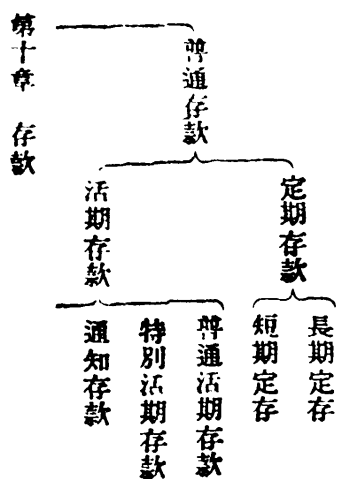 普通存款
定期存款
長期定存
短期定存
活期存款
普通活期存款
特別活期存款
通知存款
第十章　存款